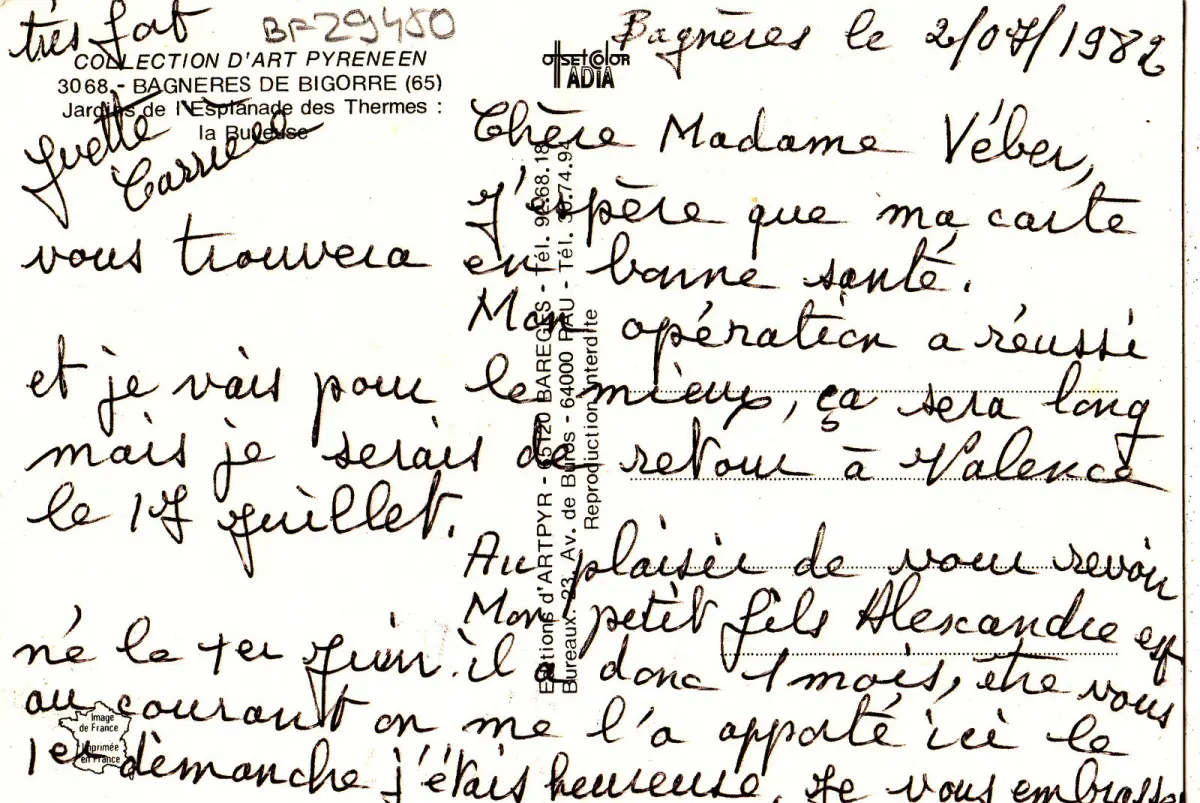 Bagnères le 2/07/1982
Chère Madame Véber,
J'espère que ma carte
vous trouvera en bonne santé.
Mon opération a réussi
et je vais pour le mieux, ça sera long
mais je serais de retour à Valence
le 17 juillet.
Au plaisir de vour revoir
Mon petit fils Alexandre est
né le 1er juin. il a donc 1 mois, être vous
au courant on me l'a apporté ici le
1er dimanche j'étais heureuse. Je vous embrasse
très fort
Yvette
Carrière
BF29450
COLLECTION D'ART PYRENEEN
3068 - BAGNERES DE BIGORRE (65)
Jardins de l'Esplanade des Thermes :
la Buveuse
OFFSET COLOR
ADIA
Editions d'ARTPYR - 65120 BAREGES - Tél. 92.68.18
Bureaux : 23, Av. de Buros - 64000 PAU - Tél. 30.74.94
Reproduction interdite
Image
de France
Imprimée
en France